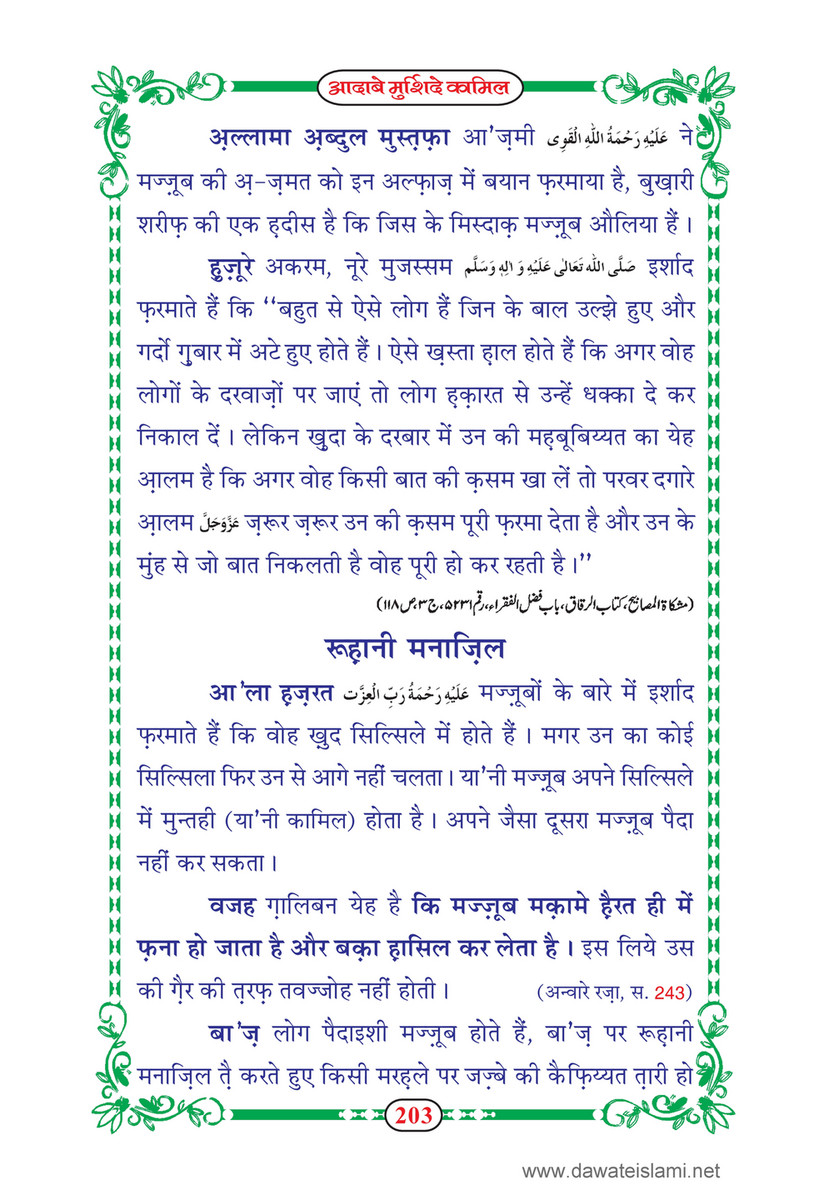 आदाबे मुर्शिदे कामिल
अ़ल्लामा अ़ब्दुल मुस्त़फ़ा आ'ज़मी عَلَيْهِ رَحْمَةُ اللهِ الْقَوِى ने
मज्ज़ूब की अ़-ज़मत को इन अल्फ़ाज़ में बयान फ़रमाया है, बुख़ारी
शरीफ़ की एक ह़दीस है कि जिस के मिस्दाक़ मज्ज़ूब औलिया हैं ।
हुज़ूरे अकरम, नूरे मुजस्सम صَلَّى اللهُ تَعَالٰى عَلَيْهِ وَ اٰلِهٖ وَسَلَّم इर्शाद
फ़रमाते हैं कि ‘‘बहुत से ऐसे लोग हैं जिन के बाल उल्झे हुए और
गर्दो ग़ुबार में अटे हुए होते हैं । ऐसे ख़स्ता ह़ाल होते हैं कि अगर वोह
लोगों के दरवाज़ों पर जाएं तो लोग ह़क़ारत से उन्हें धक्का दे कर
निकाल दें । लेकिन ख़ुदा के दरबार में उन की मह़बूबिय्यत का येह
आ़लम है कि अगर वोह किसी बात की क़सम खा लें तो परवर दगारे
आ़लम عَزَّوَجَلَّ ज़रूर ज़रूर उन की क़सम पूरी फ़रमा देता है और उन के
मुंह से जो बात निकलती है वोह पूरी हो कर रहती है ।’’
(مشکاۃ المصابیح، کتاب الرقاق، باب فضل الفقراء، رقم ۵۲۳۱، ج۳، ص۱۱۸)
रूह़ानी मनाज़िल
आ'ला ह़ज़रत عَلَيْهِ رَحْمَةُ رَبِّ الْعِزَّت मज्ज़ूबों के बारे में इर्शाद
फ़रमाते हैं कि वोह ख़ुद सिल्सिले में होते हैं । मगर उन का कोई
सिल्सिला फिर उन से आगे नहीं चलता । या'नी मज्ज़ूब अपने सिल्सिले
में मुन्तही (या'नी कामिल) होता है । अपने जैसा दूसरा मज्ज़ूब पैदा
नहीं कर सकता ।
वजह ग़ालिबन येह है कि मज्ज़ूब मक़ामे ह़ैरत ही में
फ़ना हो जाता है और बक़ा ह़ासिल कर लेता है । इस लिये उस
की ग़ैर की त़रफ़ तवज्जोह नहीं होती । (अन्वारे रज़ा, स. 243)
बा'ज़ लोग पैदाइशी मज्ज़ूब होते हैं, बा'ज़ पर रूह़ानी
मनाज़िल त़ै करते हुए किसी मरह़ले पर जज़्बे की कैफ़िय्यत त़ारी हो
203
www.dawateislami.net